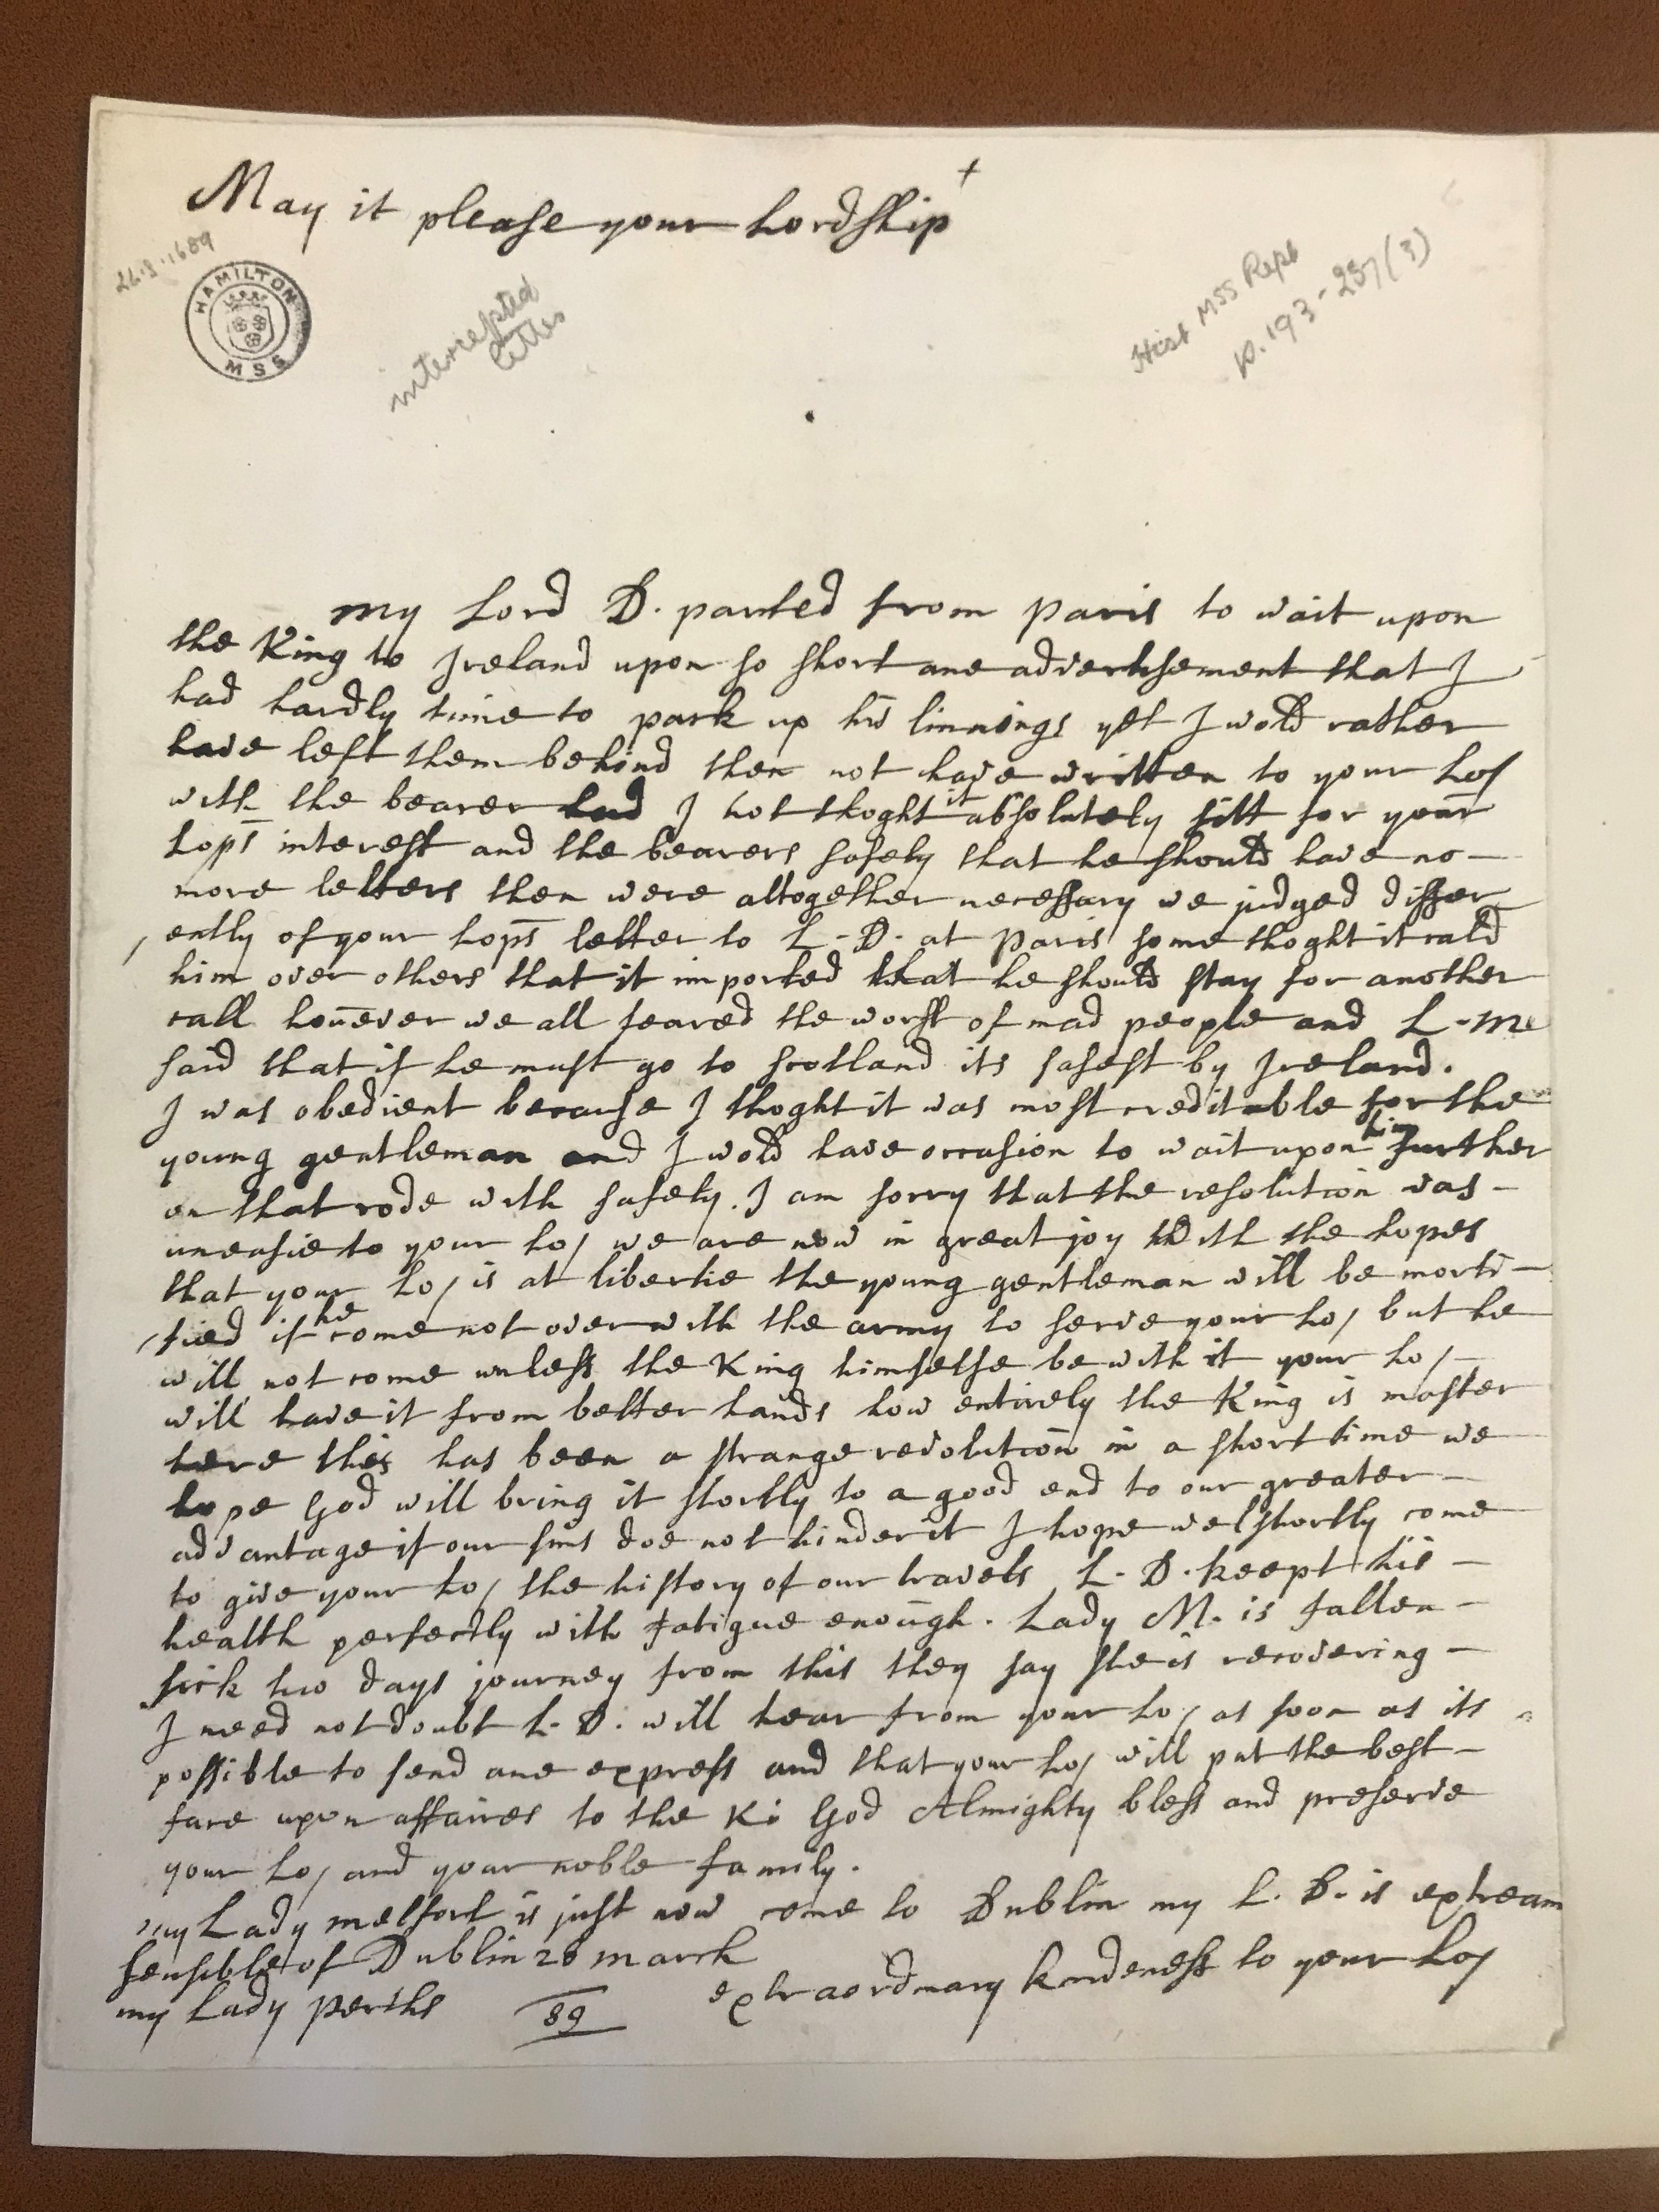 May it please your Lordship +
26.3.1689
HAMILTON MSS
intercepted
letter
Hist MSS Rept
p. 193 - 237 (3)
my Lord D. parted from paris to wait upon
the King to Ireland upon so short ane advertisement that I
had hardly time to pack up his linnings yet I wold rather
have left them behind then not have written to your Lo/
with the bearer had I not thoght it absolutely fitt for your
Lops interest and the bearers safety that he should have no
more letters then were altogether necessary we judged differ
ently of your Lops letter to L. D. at Paris some thoght it cald
him over others that it imported that he should stay for another
call however we all feared the worst of mad people and L. Me
said that if he must go to Scotland its safest by Ireland.
I was obedient because I thoght it was most creditable for the
young gentleman and I wold have occasion to wait upon him further
on that rode with safety. I am sorry that the resolution was
uneasie to your Lo/ we are now in great joy with the hopes
that your Lo/ is at libertie the young gentleman will be morti-
fied if he come not over with the army to serve your Lo/ but he
will not come unless the King himselfe be with it your Lo/
will have it from better hands how entirely the King is master
here this has been a strange revolution in a short time we
hope God will bring it shortly to a good end to our greater
advantage if our sins doe not hinder it I hope wel shortly come
to give your Lo/ the history of our travels L. D. keept his
health perfectly with fatigue enough. Lady M. is fallen
sick two days journey from this they say she is recovering
I need not doubt L. D. will hear from your Lo/ as soon as its
possible to send ane express and that your Lo/ will put the best
face upon affaires to the Ki God Almighty bless and preserve
your Lo/ and your noble family.
my Lady melfort is just now come to Dublin my L. D. is extream
sensible of Dublin 26 march
my Lady perths 89 extraordinary kindeness to your Lo/